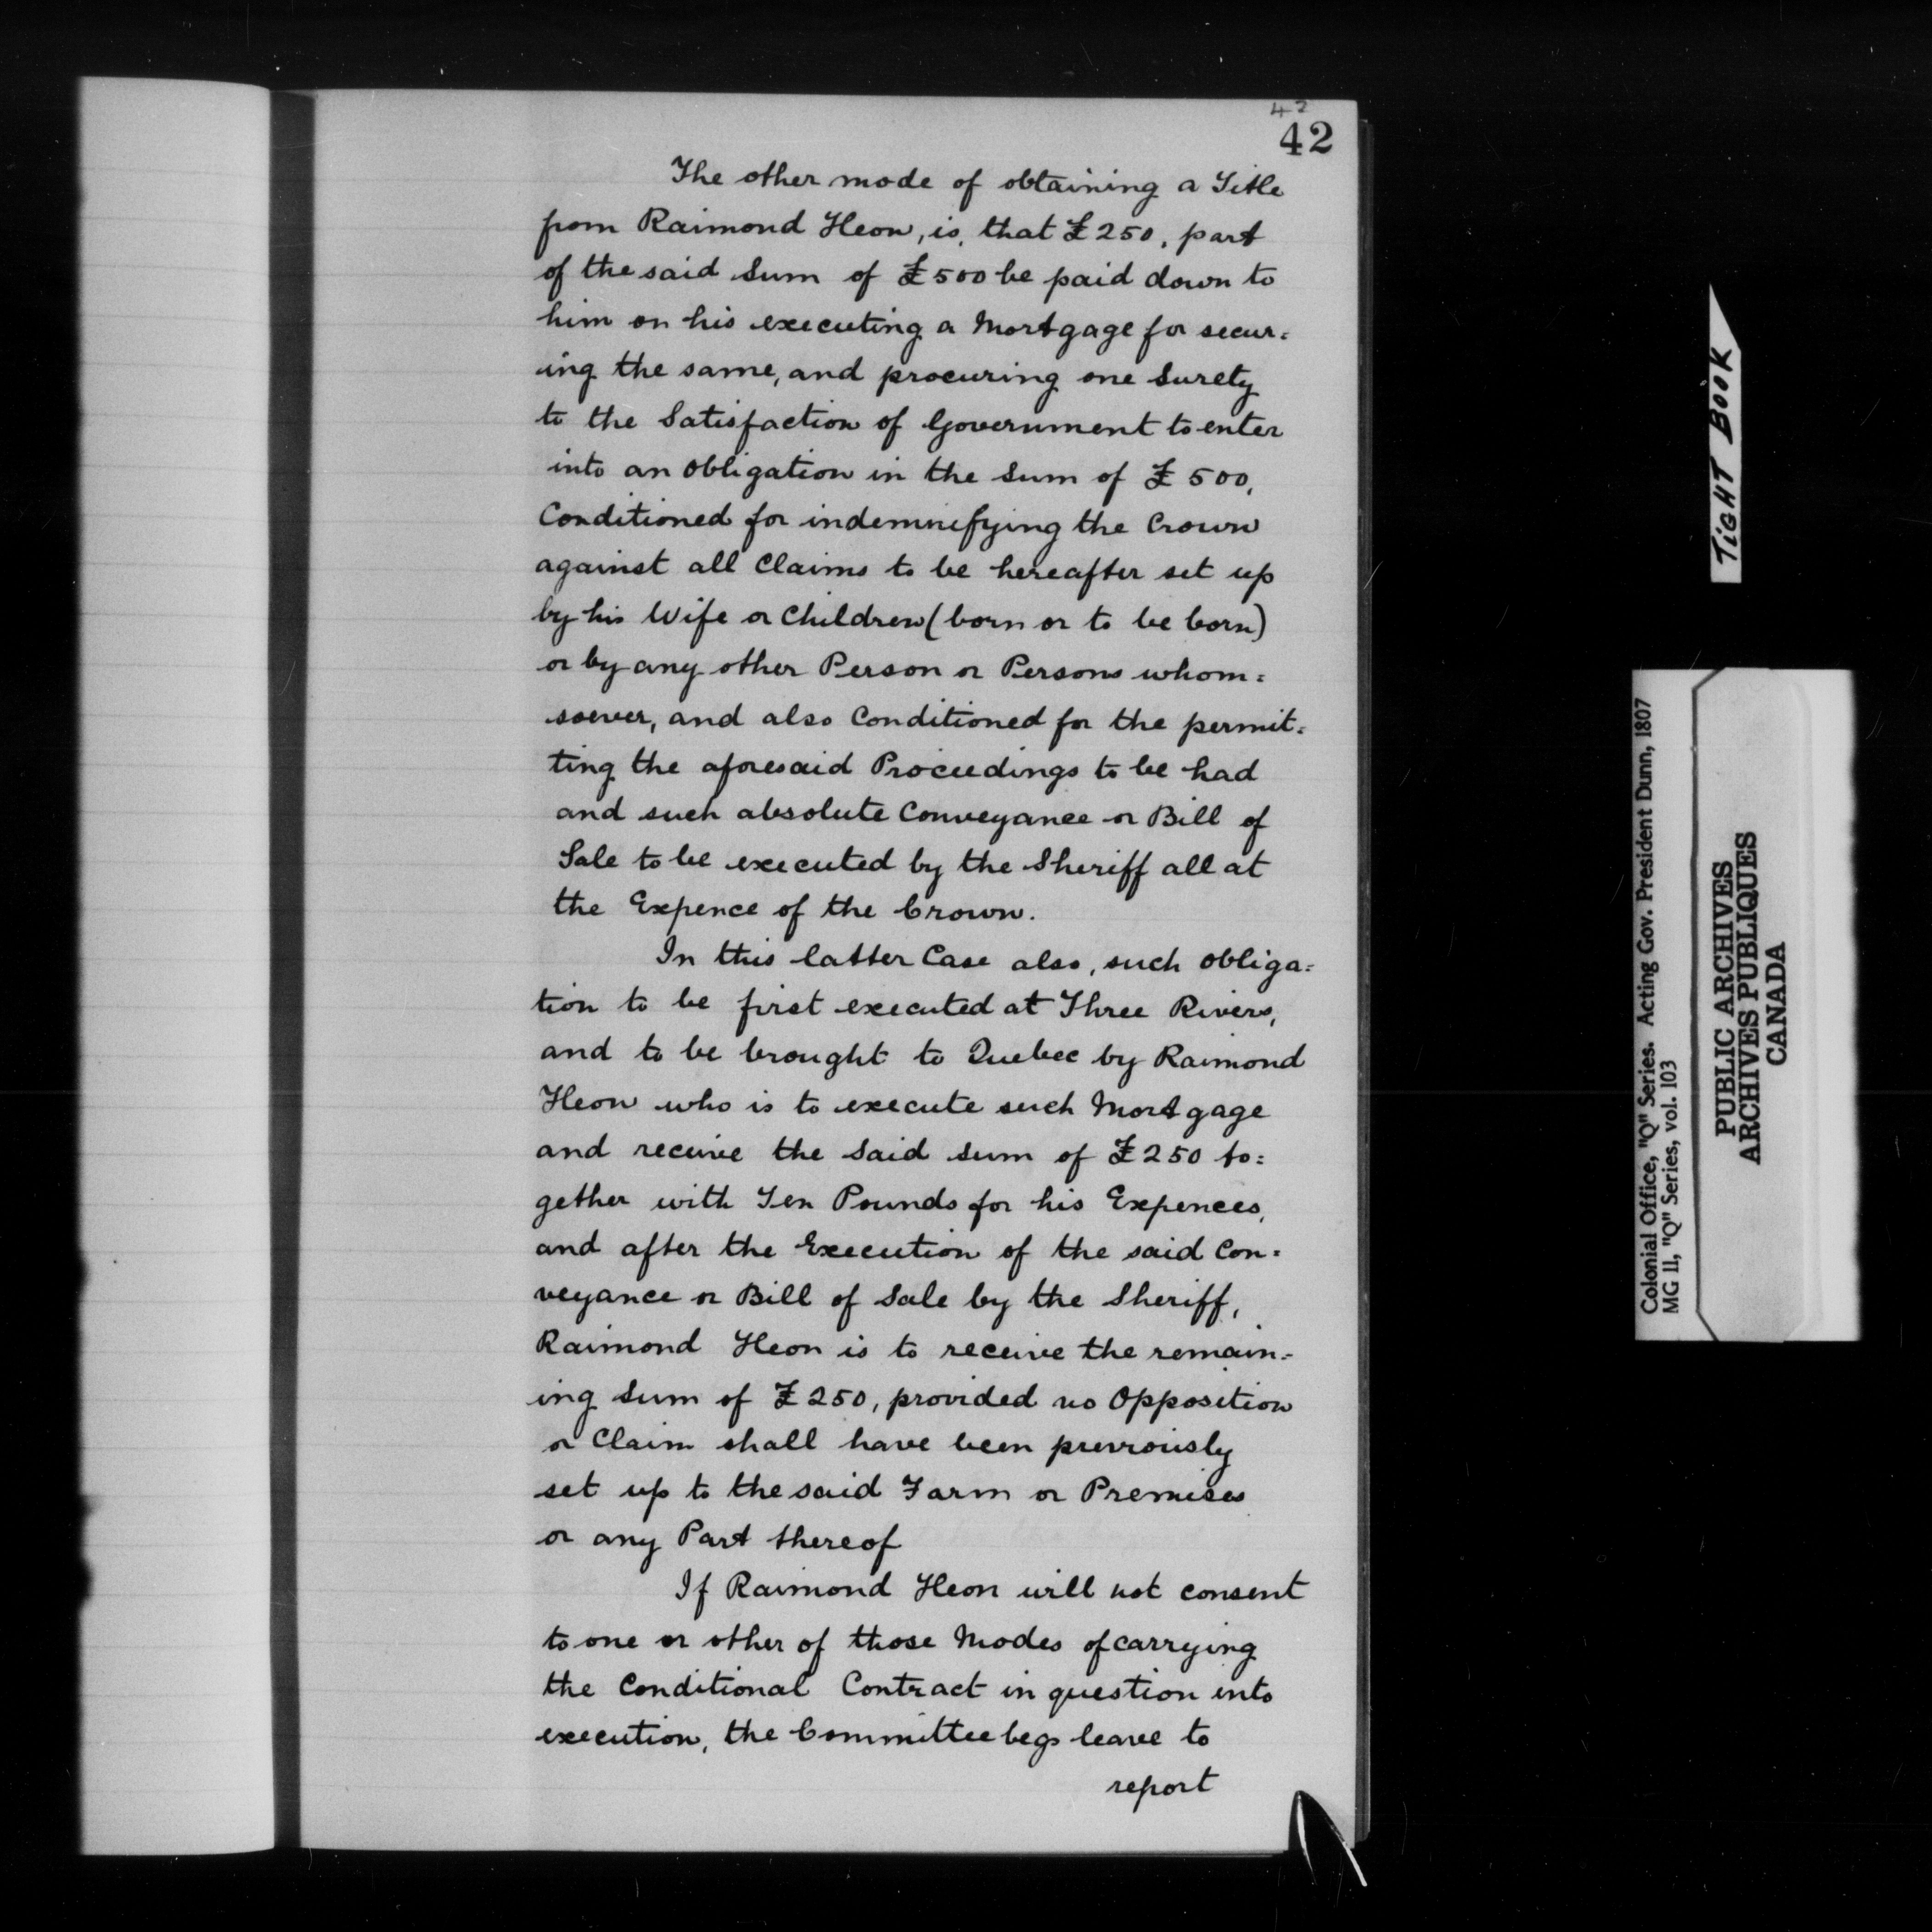 42
42
The other mode of obtaining a Title
from Raimond Heon, is, that £250, part
of the said Sum of £500 be paid down to
him on his executing a Mortgage for secur=
ing the same, and procuring one Surety
to the Satisfaction of Government to enter
into an obligation in the Sum of £500,
Conditioned for indemnifying the Crown
against all Claims to be hereafter set up
by his Wife or Children (born or to be born)
or by any other Person or Persons whom=
soever, and also Conditioned for the permit=
ting the aforesaid Proceedings to be had
and such absolute Conveyance or Bill of
Sale to be executed by the Sheriff all at
the Expence of the Crown.
In this latter Case also, such obliga=
tion to be first executed at Three Rivers,
and to be brought to Quebec by Raimond
Heon who is to execute such Mortgage
and receive the said sum of £250 to=
gether with Ten Pounds for his Expences,
and after the Execution of the said Con=
veyance or Bill of Sale by the Sheriff,
Raimond Heon is to receive the remain=
ing Sum of £250, provided no Opposition
or Claim shall have been previously
set up to the said Farm or Premises
or any Part thereof
If Raimond Heon will not consent
to one or other of those Modes of carrying
the Conditional Contract in question into
execution, the Committee begs leave to
report
TIGHT BOOK
Colonial Office, "Q" Series. Acting Gov. President Dunn, 1807
MG 11, "Q" Series, vol. 103
PUBLIC ARCHIVES
ARCHIVES PUBLIQUES
CANADA